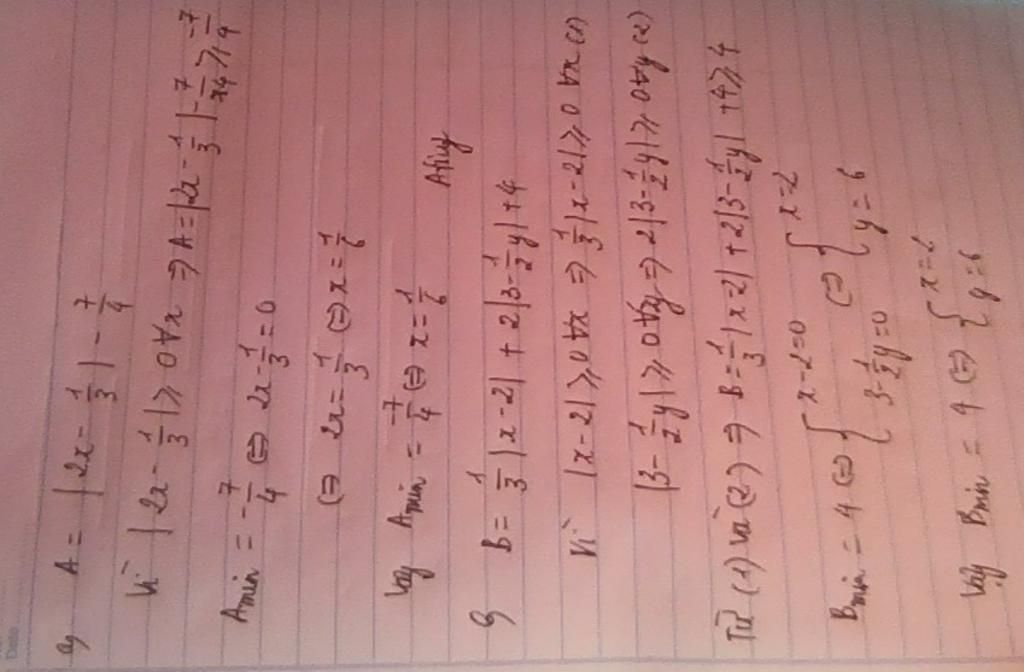 a) A = |2x - 1/3| - 7/4
Vì |2x - 1/3| ≥ 0 ∀x ⇒ A = |2x - 1/3| - 7/4 ≥ -7/4
Amin = -7/4 ⇔ 2x - 1/3 = 0
⇔ 2x = 1/3 ⇔ x = 1/6
Vậy Amin = -7/4 ⇔ x = 1/6
B = 1/3 |x - 2| + 2 |3 - 1/2 y| + 4
Vì |x - 2| ≥ 0 ∀x ⇒ 1/3 |x - 2| ≥ 0 ∀x (1)
|3 - 1/2 y| ≥ 0 ∀y ⇒ 2 |3 - 1/2 y| ≥ 0 ∀y (2)
Từ (1) và (2) ⇒ B = 1/3 |x - 2| + 2 |3 - 1/2 y| + 4 ≥ 4
Bmin = 4 ⇔ { x - 2 = 0 ⇔ { x = 2
3 - 1/2 y = 0 y = 6
Vậy Bmin = 4 ⇔ { x = 2
y = 6